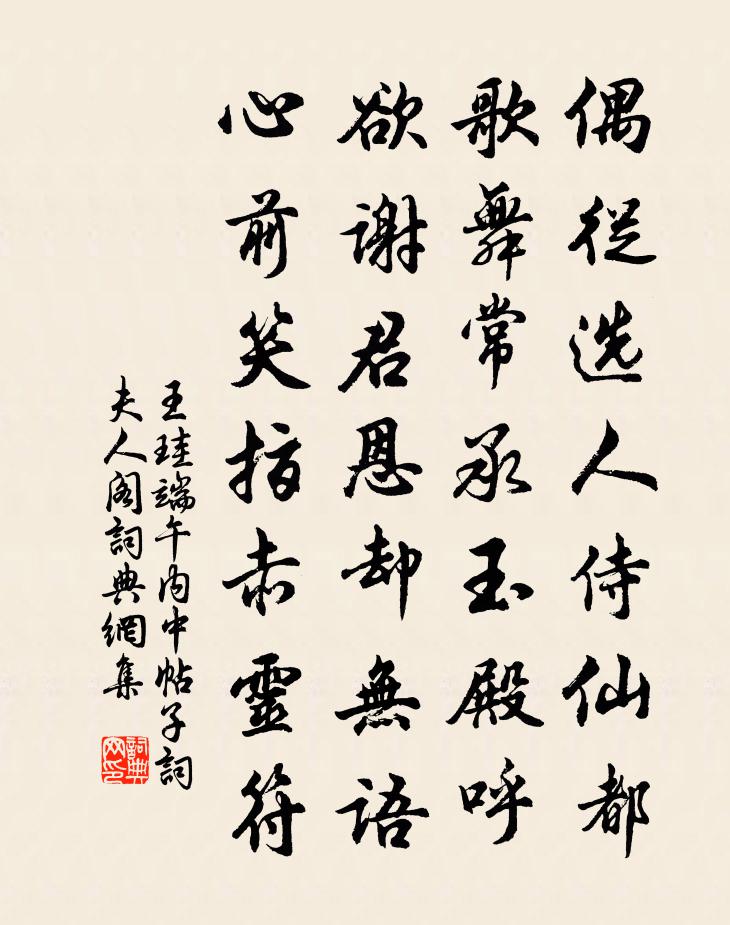 偶從选人侍仙都
歌舞常承玉殿呼
欲謝君恩却無語
心前笑指赤靈符
王珪端午内中帖子詞
夫人阁詞典網集
詞典网印